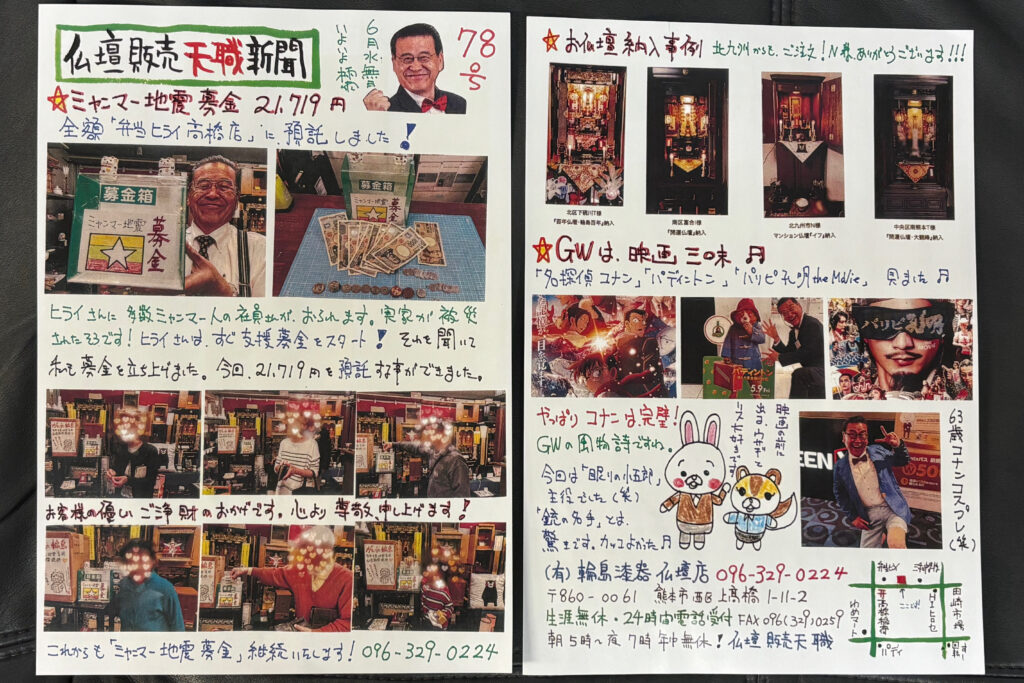 仏壇販売天職新聞
6月水無月
78号
ミャンマー地震募金 21,719円
全額「弁当ヒライ高橋店」に、預託しました!
募金箱
ミャンマー地震
募金
募金箱
ミャンマー地震
募金
ヒライさんに多数ミャンマー人の社員さんが、おられます。実家が被災
されたそうです!ヒライさんは、すぐ支援募金をスタート!それを聞いて
私も募金を立ち上げました。今回、21,719円を預託する事ができました。
お客様の優しいご浄財のおかげです。心より尊敬申し上げます!
これからも「ミャンマー地震募金」継続いたします!096-329-0224
お仏壇納入事例 北九州からも、ご注文!N様、ありがとうございます!!!
北区下硯川T様
『百年仏壇・輪島百年』納入
南区富合I様
『開運仏壇』納入
北九州市N様
マンション仏壇『イフ』納入
中央区南熊本T様
『開運仏壇・大観峰』納入
GWは、映画三昧♬
「名探偵コナン」「パディントン」「パリピ孔明the Movie」見ました♬
パディントン
5.9
パリピ孔明
やっぱりコナンは、完璧!
GWの風物詩ですね。
今回は「眠りの小五郎」
主役でした(笑)
「銃の名手」とは、
驚きです。カッコよかった♬
映画の前に
出る、ウサギと
リス大好きです
63歳コナンコスプレ(笑)
(有)輪島漆器仏壇店 096-329-0224
〒860-0061 熊本市西区上高橋1-11-2
生涯無休・24時間電話受付 FAX096(329)0259
朝5時〜夜7時年中無休!仏壇販売天職
ここ
高橋稲荷
ゆめマート
田崎市場